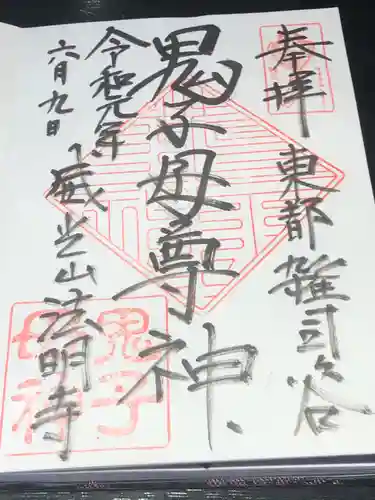 奉拝
東都雑司ヶ谷
鬼子母尊神
令和元年
六月九日
威光山法明寺
鬼子
母神